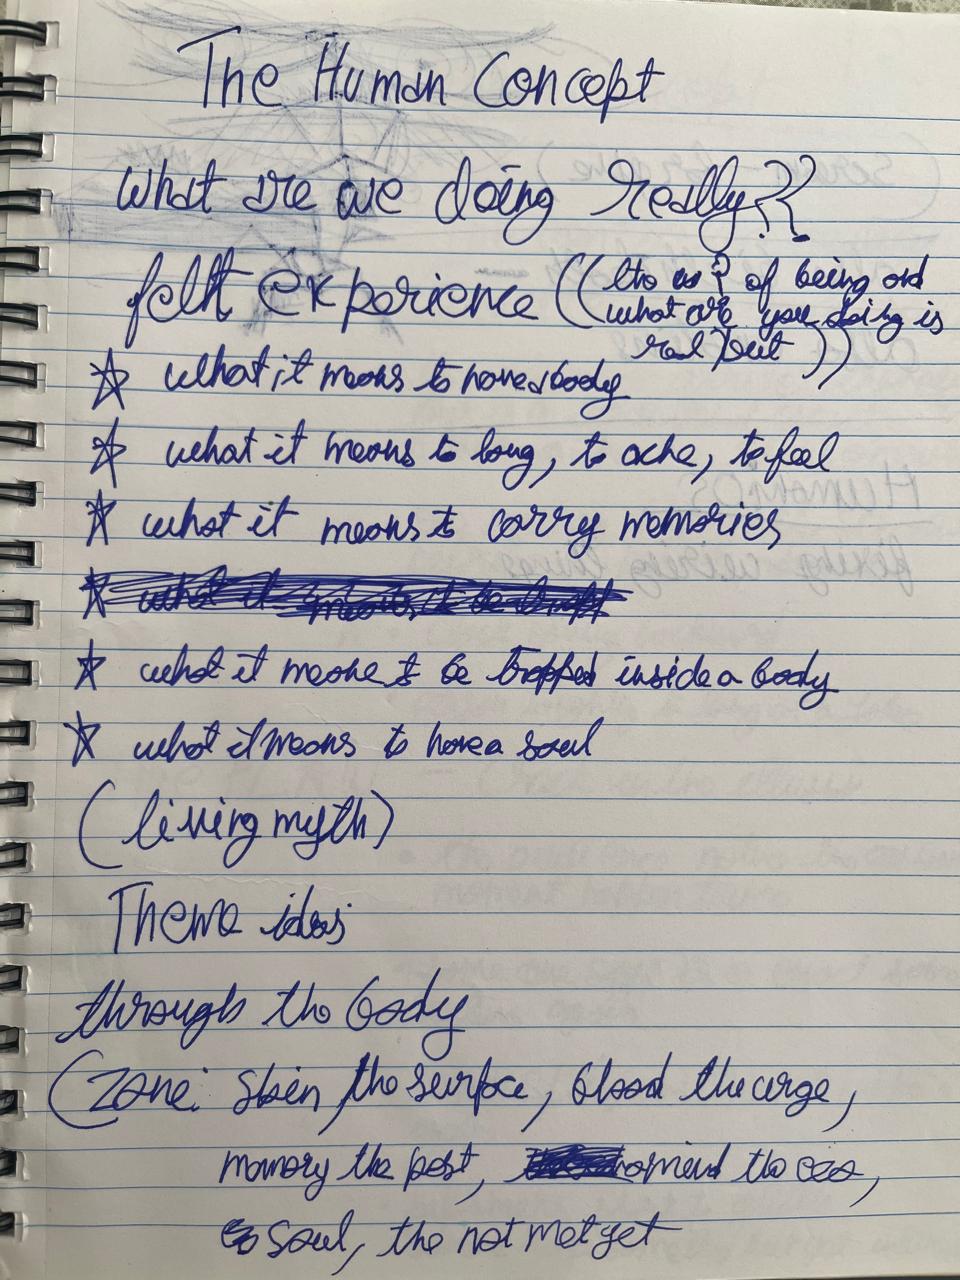 The Human Concept
What are we doing really??
felt experience ((the as ? of being and
what are you doing is
real but ))
☆ what it means to have a body
☆ what it means to long, to ache, to feel
☆ what it means to carry memories
☆ what it means to be trapped inside a body
☆ what it means to have a soul
(living myth)
Theme ideas
through the body
(Zone: Skin, the surface, blood the urge,
memory the past, mind the ,
Soul, the not met yet